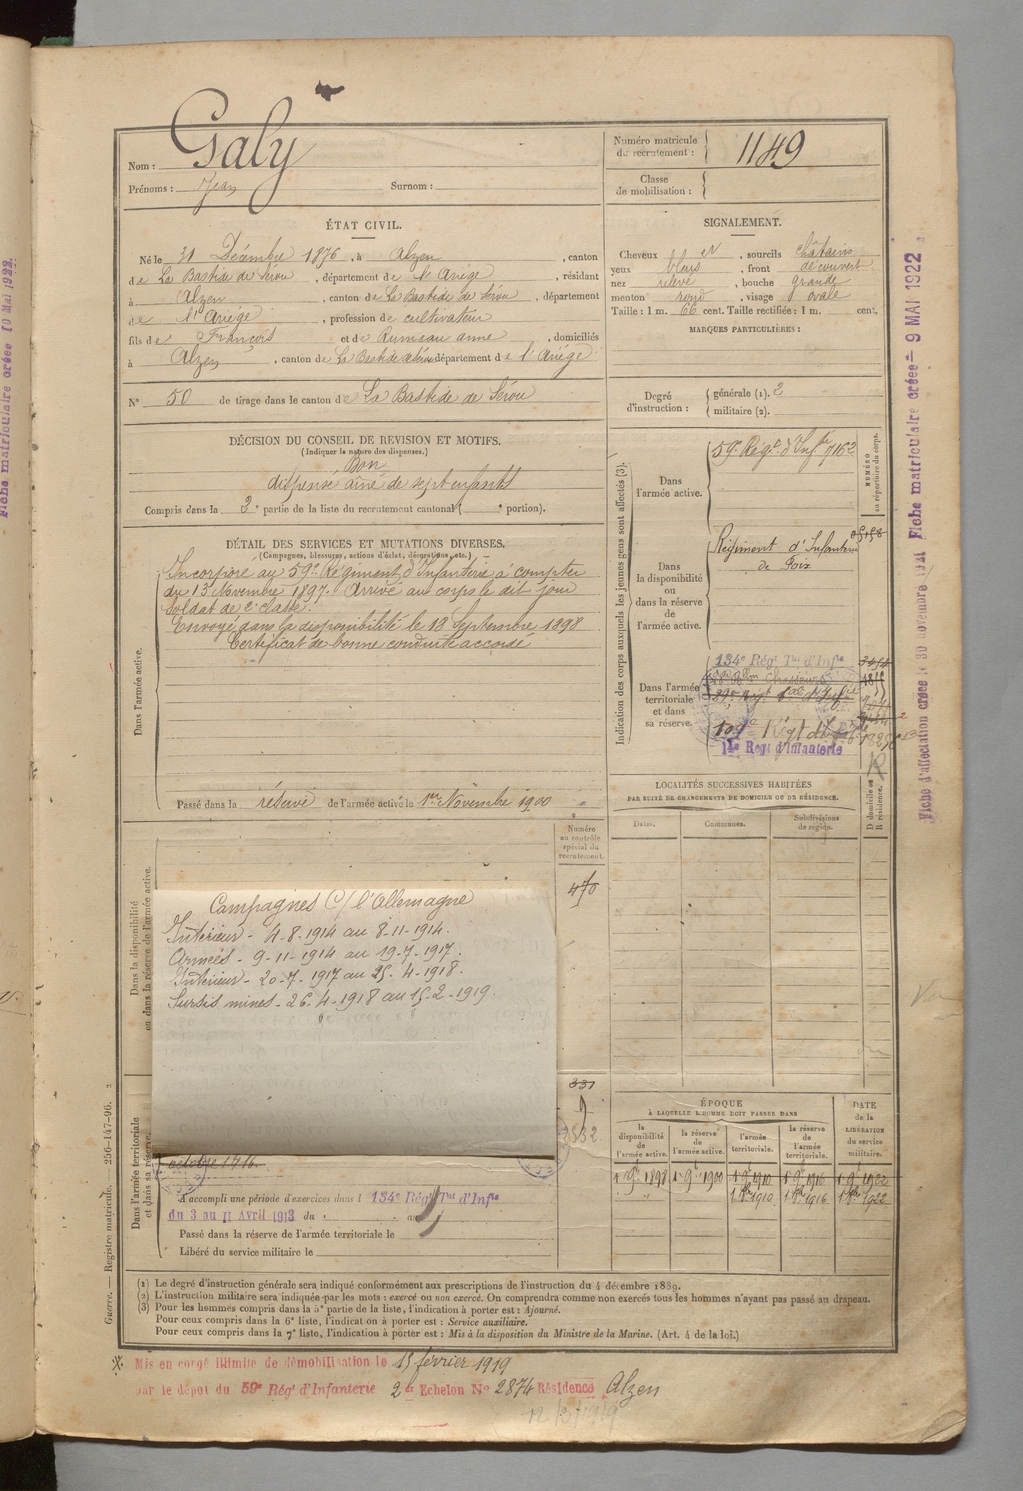 Nom : Galy
Prénoms : Jean Surnom :
Numéro matricule du recrutement : 1149
Classe de mobilisation :
ÉTAT CIVIL.
Né le 31 Décembre 1876, à Alzen, canton
de La Bastide de Sérou, département de l'Ariège, résidant
à Alzen, canton de La Bastide de Sérou, département
de l'Ariège, profession de cultivateur
fils de François et de Rumeau anne, domiciliés
à Alzen, canton de La Bastide de Sérou département de l'Ariège
N° 50 de tirage dans le canton de La Bastide de Sérou
SIGNALEMENT.
Cheveux et, sourcils châtains
yeux bleus, front découvert
nez relevé, bouche grande
menton rond, visage ovale
Taille : 1 m. 66 cent. Taille rectifiée : 1 m. cent.
MARQUES PARTICULIÈRES :
Degré d'instruction : générale (1). 2
militaire (2).
DÉCISION DU CONSEIL DE REVISION ET MOTIFS.
(Indiquer la nature des dispenses.)
Bon
dispensé aîné de sept enfants
Compris dans la 3e partie de la liste du recrutement cantonal ( portion).
DÉTAIL DES SERVICES ET MUTATIONS DIVERSES.
(Campagnes, blessures, actions d'éclat, décorations, etc.)
Dans l'armée active.
Incorporé au 59e Régiment d'Infanterie à compter
du 13 Novembre 1897. Arrivé au corps le dit jour
Soldat de 2e classe.
Envoyé dans la disponibilité le 19 Septembre 1898
Certificat de bonne conduite accordé
Passé dans la réserve de l'armée active le 1er Novembre 1900
Indication des corps auxquels les jeunes gens sont affectés (3).
NUMÉRO au répertoire du corps.
Dans l'armée active.
59e Régt d'Infie 7162
Dans la disponibilité ou dans la réserve de l'armée active.
Régiment d'Infanterie
de Foix
Dans l'armée territoriale et dans sa réserve.
134e Régt Tal d'Infie
109e Régt d'Infie
14e Régt d'Infanterie
D domicile ou R résidence.
R
LOCALITÉS SUCCESSIVES HABITÉES
PAR SUITE DE CHANGEMENTS DE DOMICILE OU DE RÉSIDENCE.
Dates. Communes. Subdivisions de région.
Numéro au contrôle spécial du recrutement.
470
Dans la disponibilité ou dans la réserve de l'armée active.
Campagnes C/ l'Allemagne
Intérieur - 4-8-1914 au 8-11-1914.
Armées - 9-11-1914 au 19-7-1917.
Intérieur - 20-7-1917 au 25-4-1918.
Sursis mines - 26-4-1918 au 15-2-1919.
331
Dans l'armée territoriale et dans sa réserve.
octobre 1916.
A accompli une période d'exercices dans l 134e Régt Tal d'Infie
du 3 au 11 Avril 1913 du au
Passé dans la réserve de l'armée territoriale le
Libéré du service militaire le
ÉPOQUE
À LAQUELLE L'HOMME DOIT PASSER DANS
la disponibilité de l'armée active.
la réserve de l'armée active.
l'armée territoriale.
la réserve de l'armée territoriale.
DATE de la LIBÉRATION du service militaire.
1 9e 1898 1 9e 1900 1 9e 1910 1 9e 1916 1 9e 1922
" " 1 8bre 1910 1 8bre 1916 1 8bre 1922
(1) Le degré d'instruction générale sera indiqué conformément aux prescriptions de l'instruction du 4 décembre 1889.
(2) L'instruction militaire sera indiquée par les mots : exercé ou non exercé. On comprendra comme non exercés tous les hommes n'ayant pas passé au drapeau.
(3) Pour les hommes compris dans la 5e partie de la liste, l'indication à porter est : Ajourné.
Pour ceux compris dans la 6e liste, l'indication à porter est : Service auxiliaire.
Pour ceux compris dans la 7e liste, l'indication à porter est : Mis à la disposition du Ministre de la Marine. (Art. 4 de la loi.)
Mis en congé illimité de démobilisation le 15 février 1919
par le dépôt du 59e Régt d'Infanterie 2e Echelon N° 2874 Résidence Alzen
12/3/1919
Guerre. — Registre matricule. — 256-147-96.
Fiche d'affectation créée le 30 novembre 1921 Fiche matriculaire créée = 9 MAI 1922
Fiche matriculaire créée 10 Mai 1922